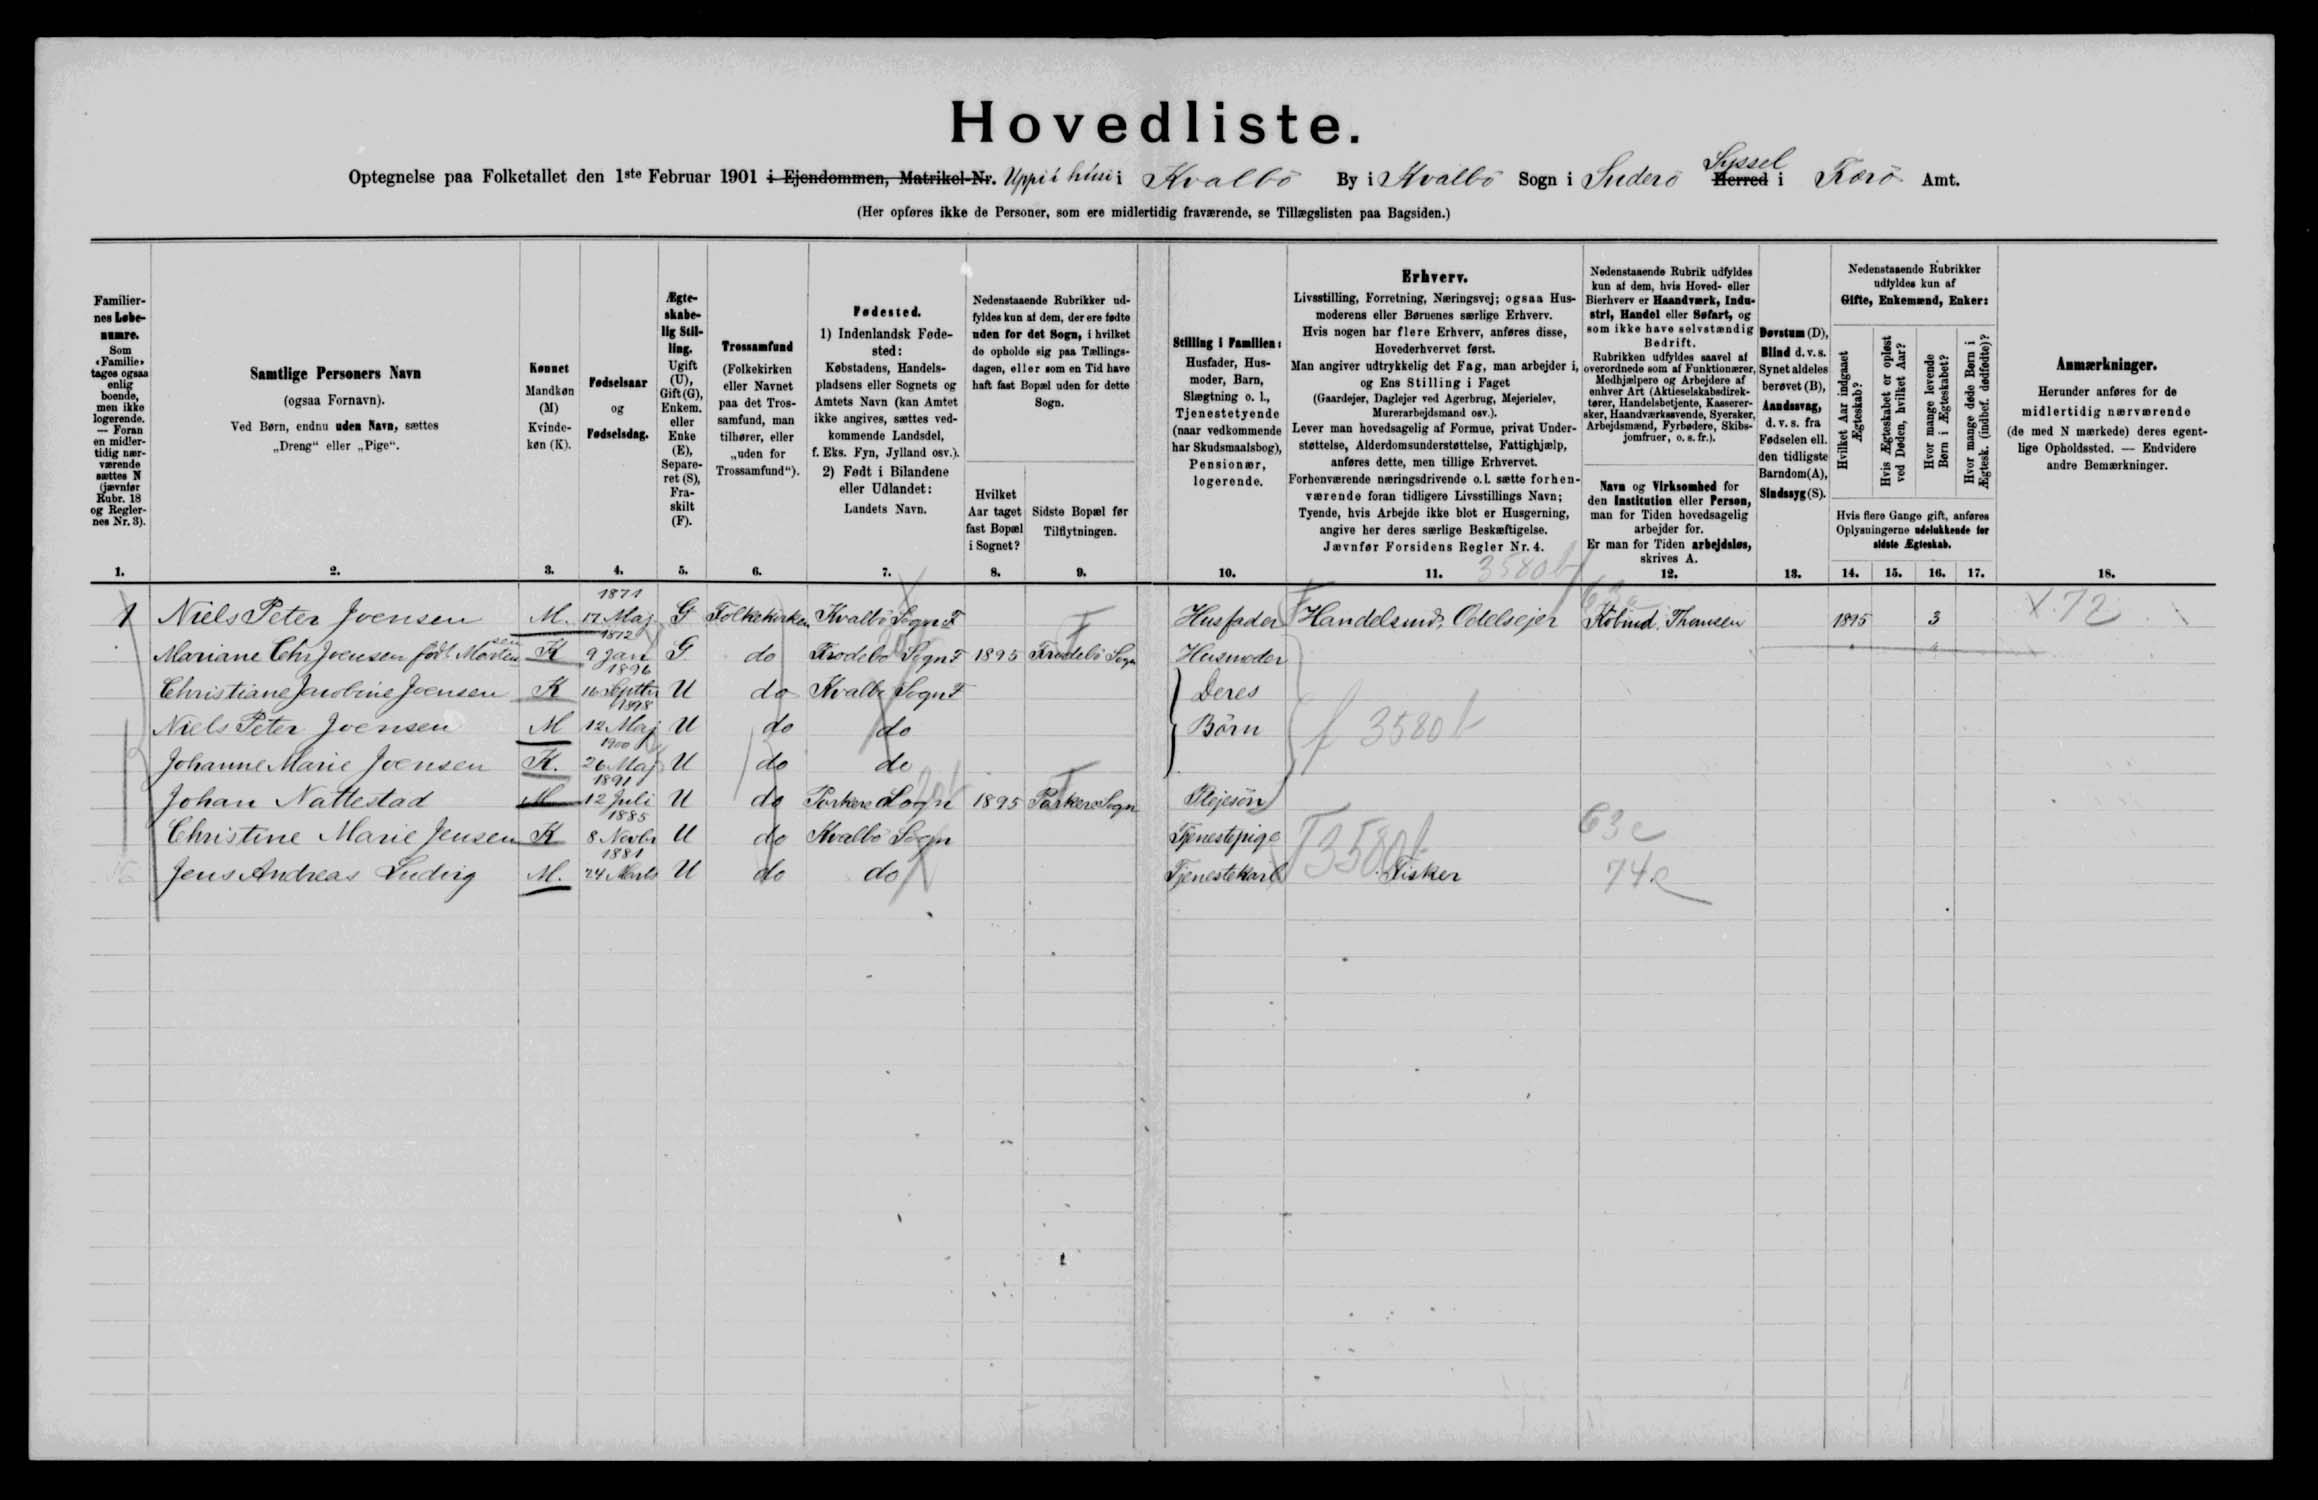 Hovedliste.
Optegnelse paa Folketallet den 1ste Februar 1901 i Ejendommen, Matrikel-Nr. Uppi i húsi i Kvalbö By i Kvalbö Sogn i Suderö Herred Syssel i Færö Amt.
(Her opføres ikke de Personer, som ere midlertidig fraværende, se Tillægslisten paa Bagsiden.)
Familiernes Løbenumre.
Som «Familie» tages ogsaa enlig boende, men ikke logerende. — Foran en midlertidig nærværende sættes N (jævnfør Rubr. 18 og Reglernes Nr. 3).
Samtlige Personers Navn
(ogsaa Fornavn).
Ved Børn, endnu uden Navn, sættes
„Dreng“ eller „Pige“.
Kønnet
Mandkøn (M)
Kvindekøn (K).
Fødselsaar
og
Fødselsdag.
Ægteskabelig Stilling.
Ugift (U), Gift (G), Enkem. eller Enke (E), Separeret (S), Fraskilt (F).
Trossamfund
(Folkekirken eller Navnet paa det Trossamfund, man tilhører, eller „uden for Trossamfund“).
Fødested.
1) Indenlandsk Fødested:
Købstadens, Handelspladsens eller Sognets og Amtets Navn (kan Amtet ikke angives, sættes vedkommende Landsdel, f. Eks. Fyn, Jylland osv.).
2) Født i Bilandene eller Udlandet:
Landets Navn.
Nedenstaaende Rubrikker udfyldes kun af dem, der ere fødte uden for det Sogn, i hvilket de opholde sig paa Tællingsdagen, eller som en Tid have haft fast Bopæl uden for dette Sogn.
Hvilket Aar taget fast Bopæl i Sognet?
Sidste Bopæl før Tilflytningen.
Stilling i Familien:
Husfader, Husmoder, Barn, Slægtning o. l., Tjenestetyende (naar vedkommende har Skudsmaalsbog), Pensionær, logerende.
Erhverv.
Livsstilling, Forretning, Næringsvej; ogsaa Husmoderens eller Børnenes særlige Erhverv.
Hvis nogen har flere Erhverv, anføres disse, Hovederhvervet først.
Man angiver udtrykkelig det Fag, man arbejder i, og Ens Stilling i Faget
(Gaardejer, Daglejer ved Agerbrug, Mejerielev, Murerarbejdsmand osv.).
Lever man hovedsagelig af Formue, privat Understøttelse, Alderdomsunderstøttelse, Fattighjælp, anføres dette, men tillige Erhvervet.
Forhenværende næringsdrivende o. l. sætte forhenværende foran tidligere Livsstillings Navn;
Tyende, hvis Arbejde ikke blot er Husgerning, angive her deres særlige Beskæftigelse.
Jævnfør Forsidens Regler Nr. 4.
Nedenstaaende Rubrik udfyldes kun af dem, hvis Hoved- eller Bierhverv er Haandværk, Industri, Handel eller Søfart, og som ikke have selvstændig Bedrift.
Rubrikken udfyldes saavel af overordnede som af Funktionærer, Medhjælpere og Arbejdere af enhver Art (Aktieselskabsdirektører, Handelsbetjente, Kasserersker, Haandværkssvende, Syersker, Arbejdsmænd, Fyrbødere, Skibsjomfruer, o. s. fr.).
Navn og Virksomhed for den Institution eller Person, man for Tiden hovedsagelig arbejder for.
Er man for Tiden arbejdsløs, skrives A.
Døvstum (D), Blind d. v. s. Synet aldeles berøvet (B), Aandssvag, d. v. s. fra Fødselen ell. den tidligste Barndom (A), Sindssyg (S).
Nedenstaaende Rubrikker udfyldes kun af
Gifte, Enkemænd, Enker:
Hvilket Aar indgaaet Ægteskab?
Hvis Ægteskabet er opløst ved Døden, hvilket Aar?
Hvor mange levende Børn i Ægteskabet?
Hvor mange døde Børn i Ægtesk. (indbef. dødfødte)?
Hvis flere Gange gift, anføres Oplysningerne udelukkende for sidste Ægteskab.
Anmærkninger.
Herunder anføres for de midlertidig nærværende (de med N mærkede) deres egentlige Opholdssted. — Endvidere andre Bemærkninger.
1. 2. 3. 4. 5. 6. 7. 8. 9. 10. 11. 12. 13. 14. 15. 16. 17. 18.
3580 f
1 Niels Peter Joensen M. 1871 17 Maj G Folkekirken Kvalbö Sogn F Husfader Handelsmd, Odelsejer Köbmd. Thomsen 1895 3 X. 72
Mariane Chr Joensen født Mortensen K 1872 9 Jan G do Frodebö Sogn F 1895 Frodebö Sogn Husmoder
Christiane Jacobine Joensen K 1896 16 Septbr U do Kvalbö Sogn F } Deres
Niels Peter Joensen M 1898 12 Maj U do do Börn f 3580 f
Johanne Marie Joensen K. 1900 26 Maj U do do
Johan Nattestad M 1891 12 Juli U do Porkere Sogn 1895 Porkere Sogn Plejesön
Christine Marie Jensen K 1885 8 Novbr U do Kvalbö Sogn Tjenestepige 63 c
Jens Andreas Ludvig M. 1881 24 Marts U do do Tjenestekarl T 3580 f Fisker 74 e